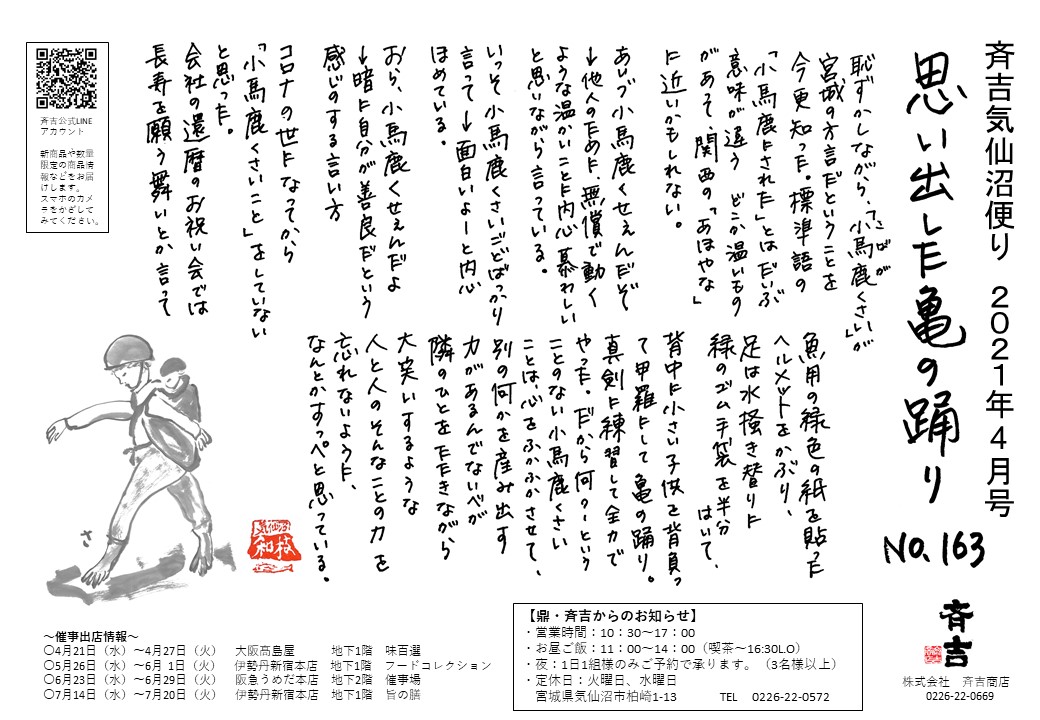 斉吉気仙沼便り 2021年4月号
思い出した亀の踊り
No.163
恥ずかしながら、「小馬鹿くさい」が
こばが
宮城の方言だということを
今更知った。標準語の
「小馬鹿にされた」とはだいぶ
意味が違う どこか温いもの
があって、関西の「あほやな」
に近いかもしれない。
あいづ小馬鹿くせぇんだぞ
↓他人のために、無償で動く
ような温かいことに内心慕わしい
と思いながら言っている。
いっそ小馬鹿くさいごどばっかり
言って→面白いよーと内心
ほめている。
おら、小馬鹿くせぇんだよ
↓暗に自分が善良だという
感じのする言い方
コロナの世になってから
「小馬鹿くさいこと」をしていない
と思った。
会社の還暦のお祝い会では
長寿を願う舞いとか言って
魚用の緑色の紙を貼った
ヘルメットをかぶり、
足は水掻き替りに
緑のゴム手袋を半分
はいて、
背中に小さい子供を背負っ
て甲羅にして亀の踊り。
真剣に練習して全力で
やった。だから何?という
ことのない小馬鹿くさい
ことは、心をふかふかさせて、
別の何かを産み出す
力があるんでないべが
隣のひとをたたきながら
大笑いするような
人と人のそんなことの力を
忘れないように、
なんとかすっぺと思っている。
和枝
さ
斉吉公式LINE
アカウント
新商品や数量
限定の商品情
報などをお届
けします。
スマホのカメ
ラをかざして
みてください。
～催事出店情報～
〇4月21日（水）～4月27日（火） 大阪髙島屋 地下1階 味百選
〇5月26日（水）～6月 1日（火） 伊勢丹新宿本店 地下1階 フードコレクション
〇6月23日（水）～6月29日（火） 阪急うめだ本店 地下2階 催事場
〇7月14日（水）～7月20日（火） 伊勢丹新宿本店 地下1階 旨の膳
【鼎・斉吉からのお知らせ】
・営業時間：10：30～17：00
・お昼ご飯：11：00～14：00（喫茶～16:30L.O）
・夜：1日1組様のみご予約で承ります。（3名様以上）
・定休日：火曜日、水曜日
宮城県気仙沼市柏崎1-13 TEL 0226-22-0572
斉吉
株式会社 斉吉商店
0226-22-0669